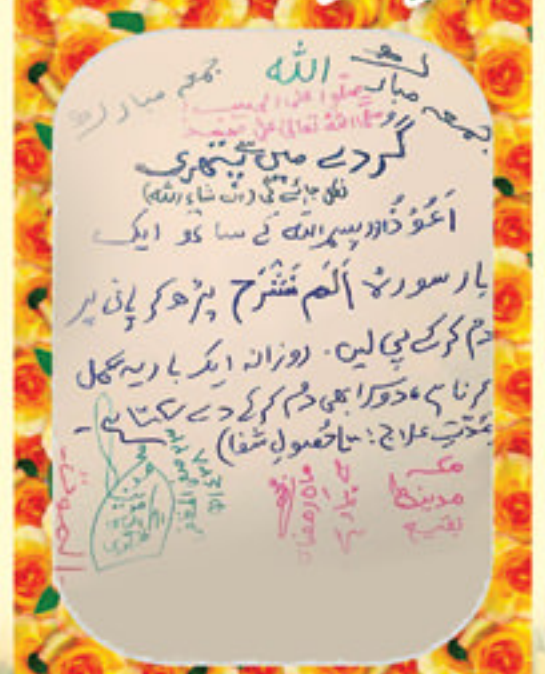 اللہ
جمعہ مبارک
جمعہ مبارک
صلّوا علی الحبیب!
صلَّی اللہُ تعالیٰ علیٰ محمّد
گُردے میں سے پتھری
نکل جائے گی (ان شاءَ اللہ)
اَعُوْذُ اور بِسمِ اللہ کے ساتھ ایک
بار سورۃ اَلَمْ نَشْرَح پڑھ کر پانی پر
دم کرکے پی لیں۔ روزانہ ایک بار یہ عمل
کرنا ہے، دوسرا بھی دم کرکے دے سکتا ہے۔
(مُدّتِ علاج: تا حُصولِ شفا)
مکہ
مدینہ
بقیع